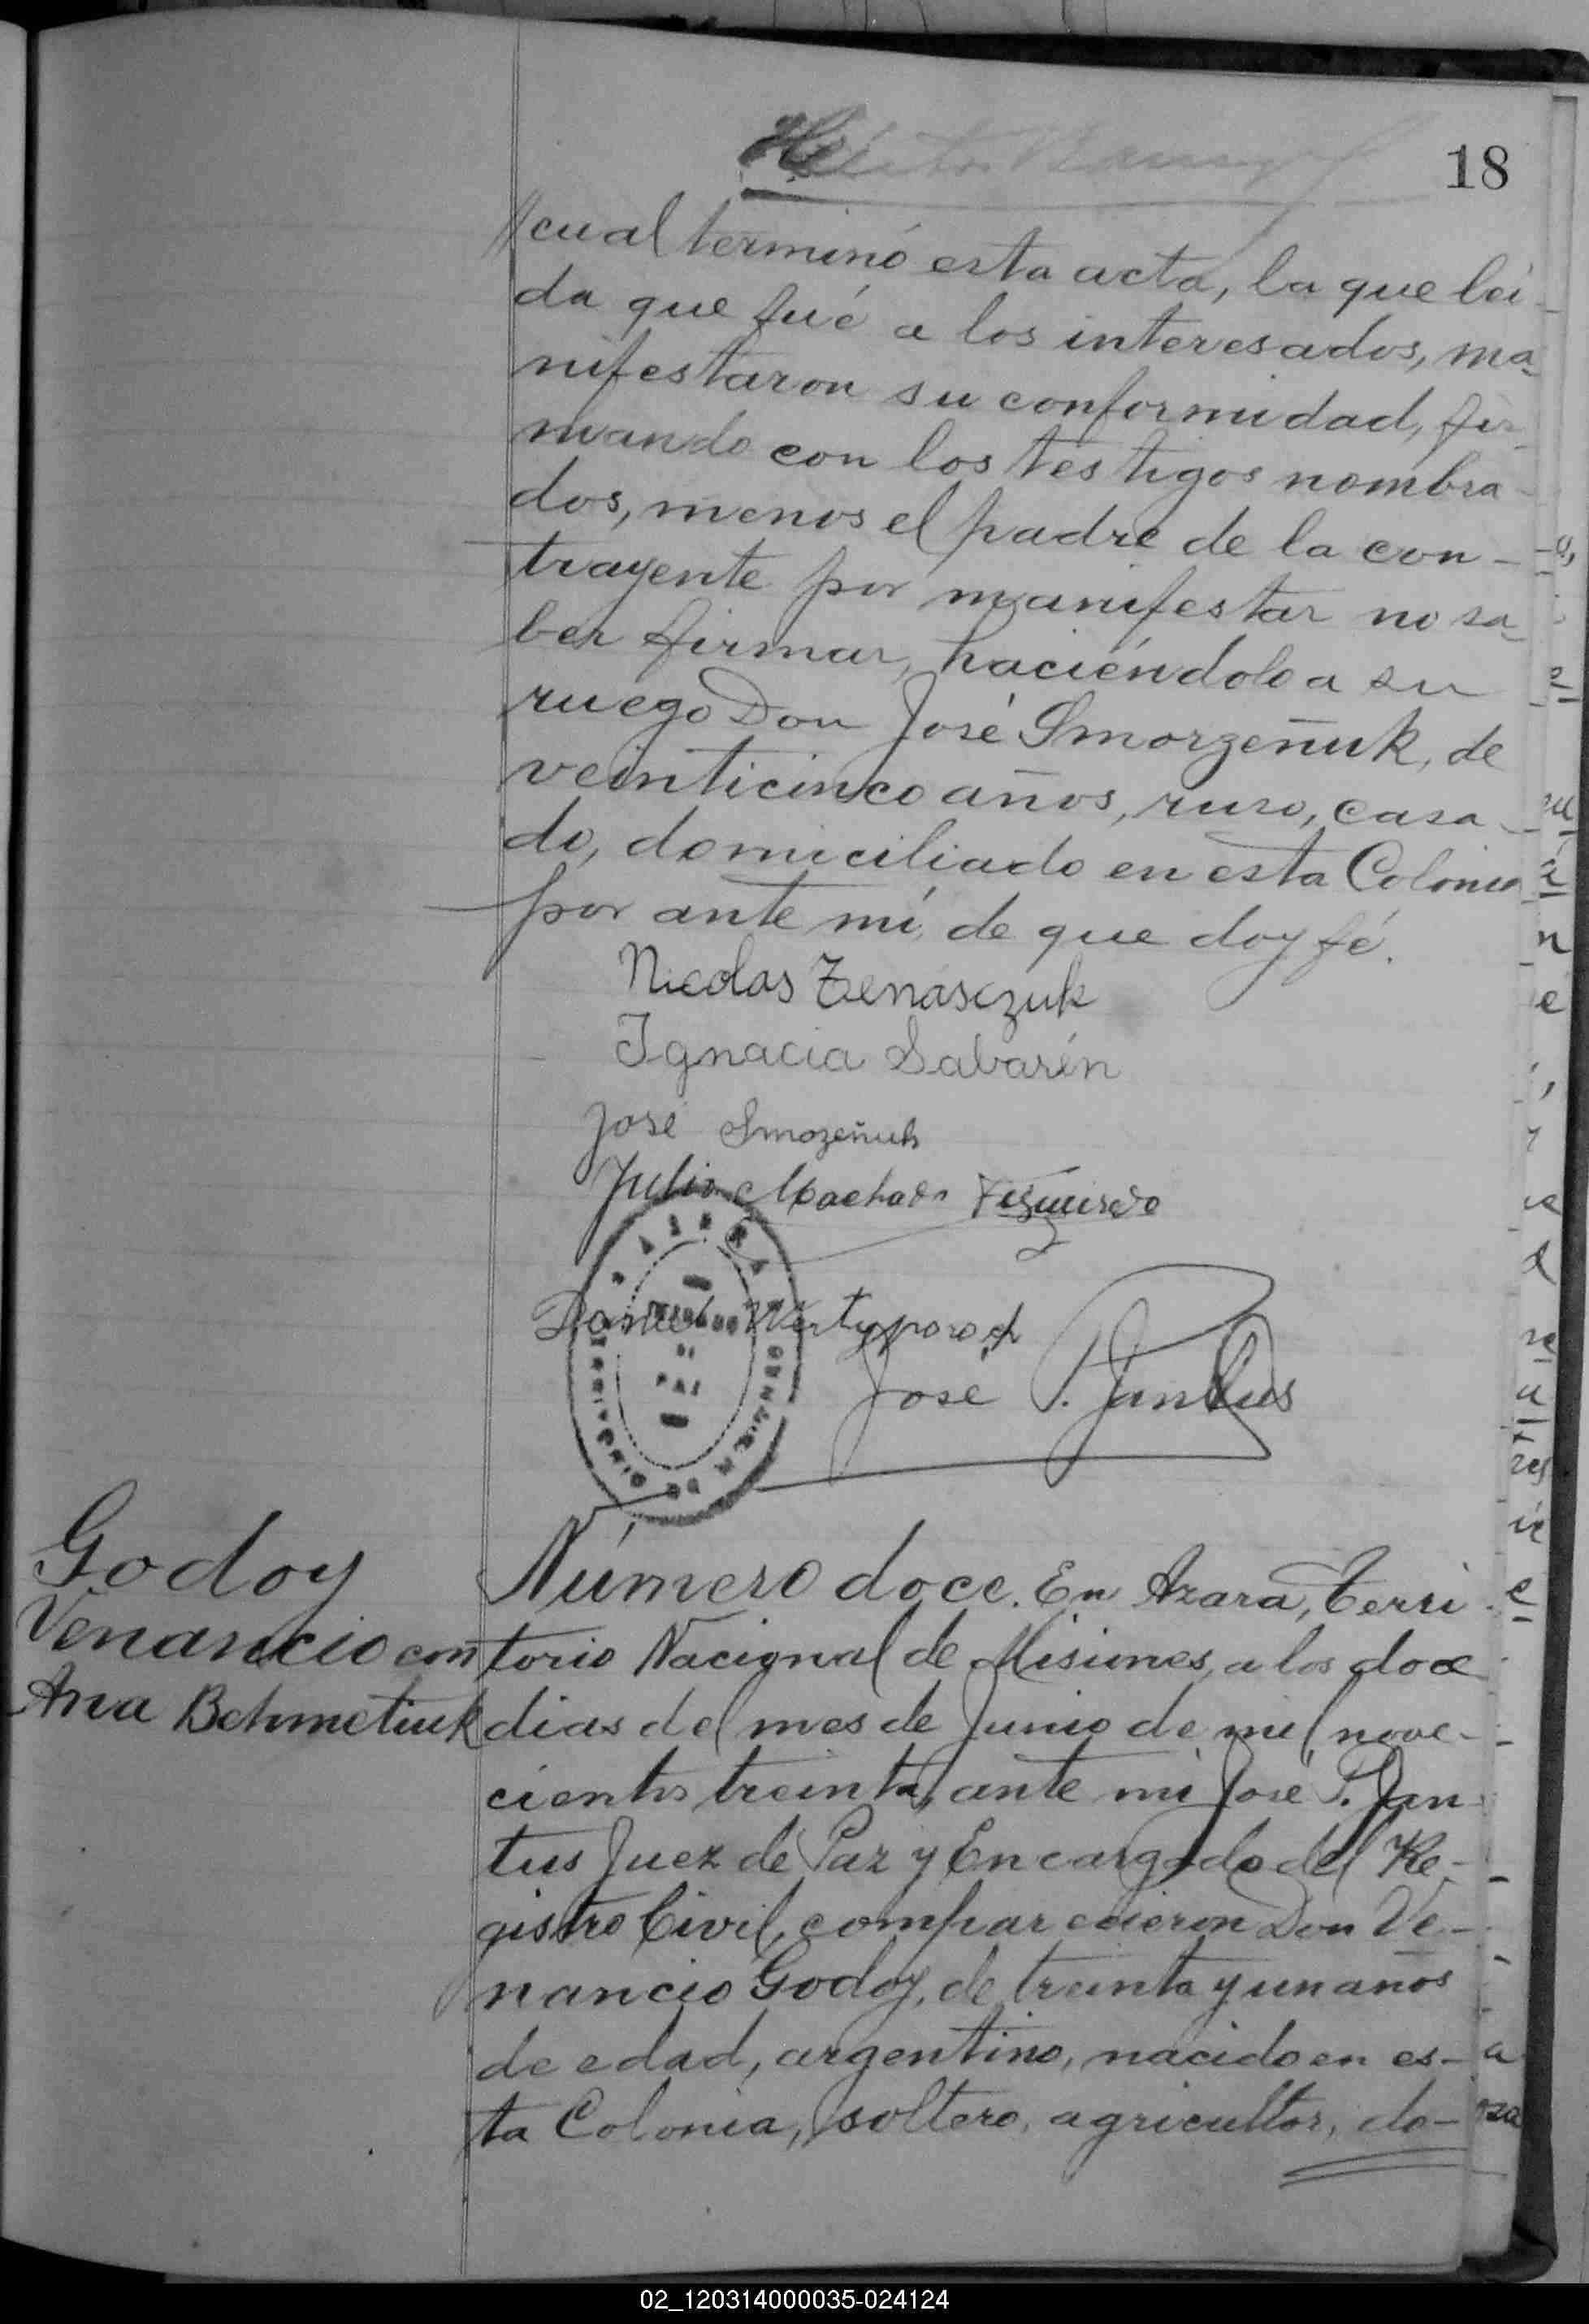 18
//cual terminó esta acta, la que leí-
da que fué a los interesados, ma-
nifestaron su conformidad, fir-
mando con los testigos nombra-
dos, menos el padre de la con-
trayente por manifestar no sa-
ber firmar, haciéndolo a su
ruego Don José Smorzeñuk, de
veinticinco años, ruso, casa-
do, domiciliado en esta Colonia
por ante mí, de que doy fé.
Nicolas Tenásczuk
Ignacia Sabarín
José Smozeñuk
Julio Machado Figueredo
Daniel
José P. Jantus
Godoy
Venancio con
Ana Bohmetiuk
Número doce. En Azara, Terri-
torio Nacional de Misiones, a los doce
dias del mes de Junio de mil nove-
cientos treinta, ante mí José P. Jan-
tus Juez de Paz y Encargado del Re-
gistro Civil, comparecieron Don Ve-
nancio Godoy, de treinta y un años
de edad, argentino, nacido en es-
ta Colonia, soltero, agricultor, do-
02_120314000035-024124